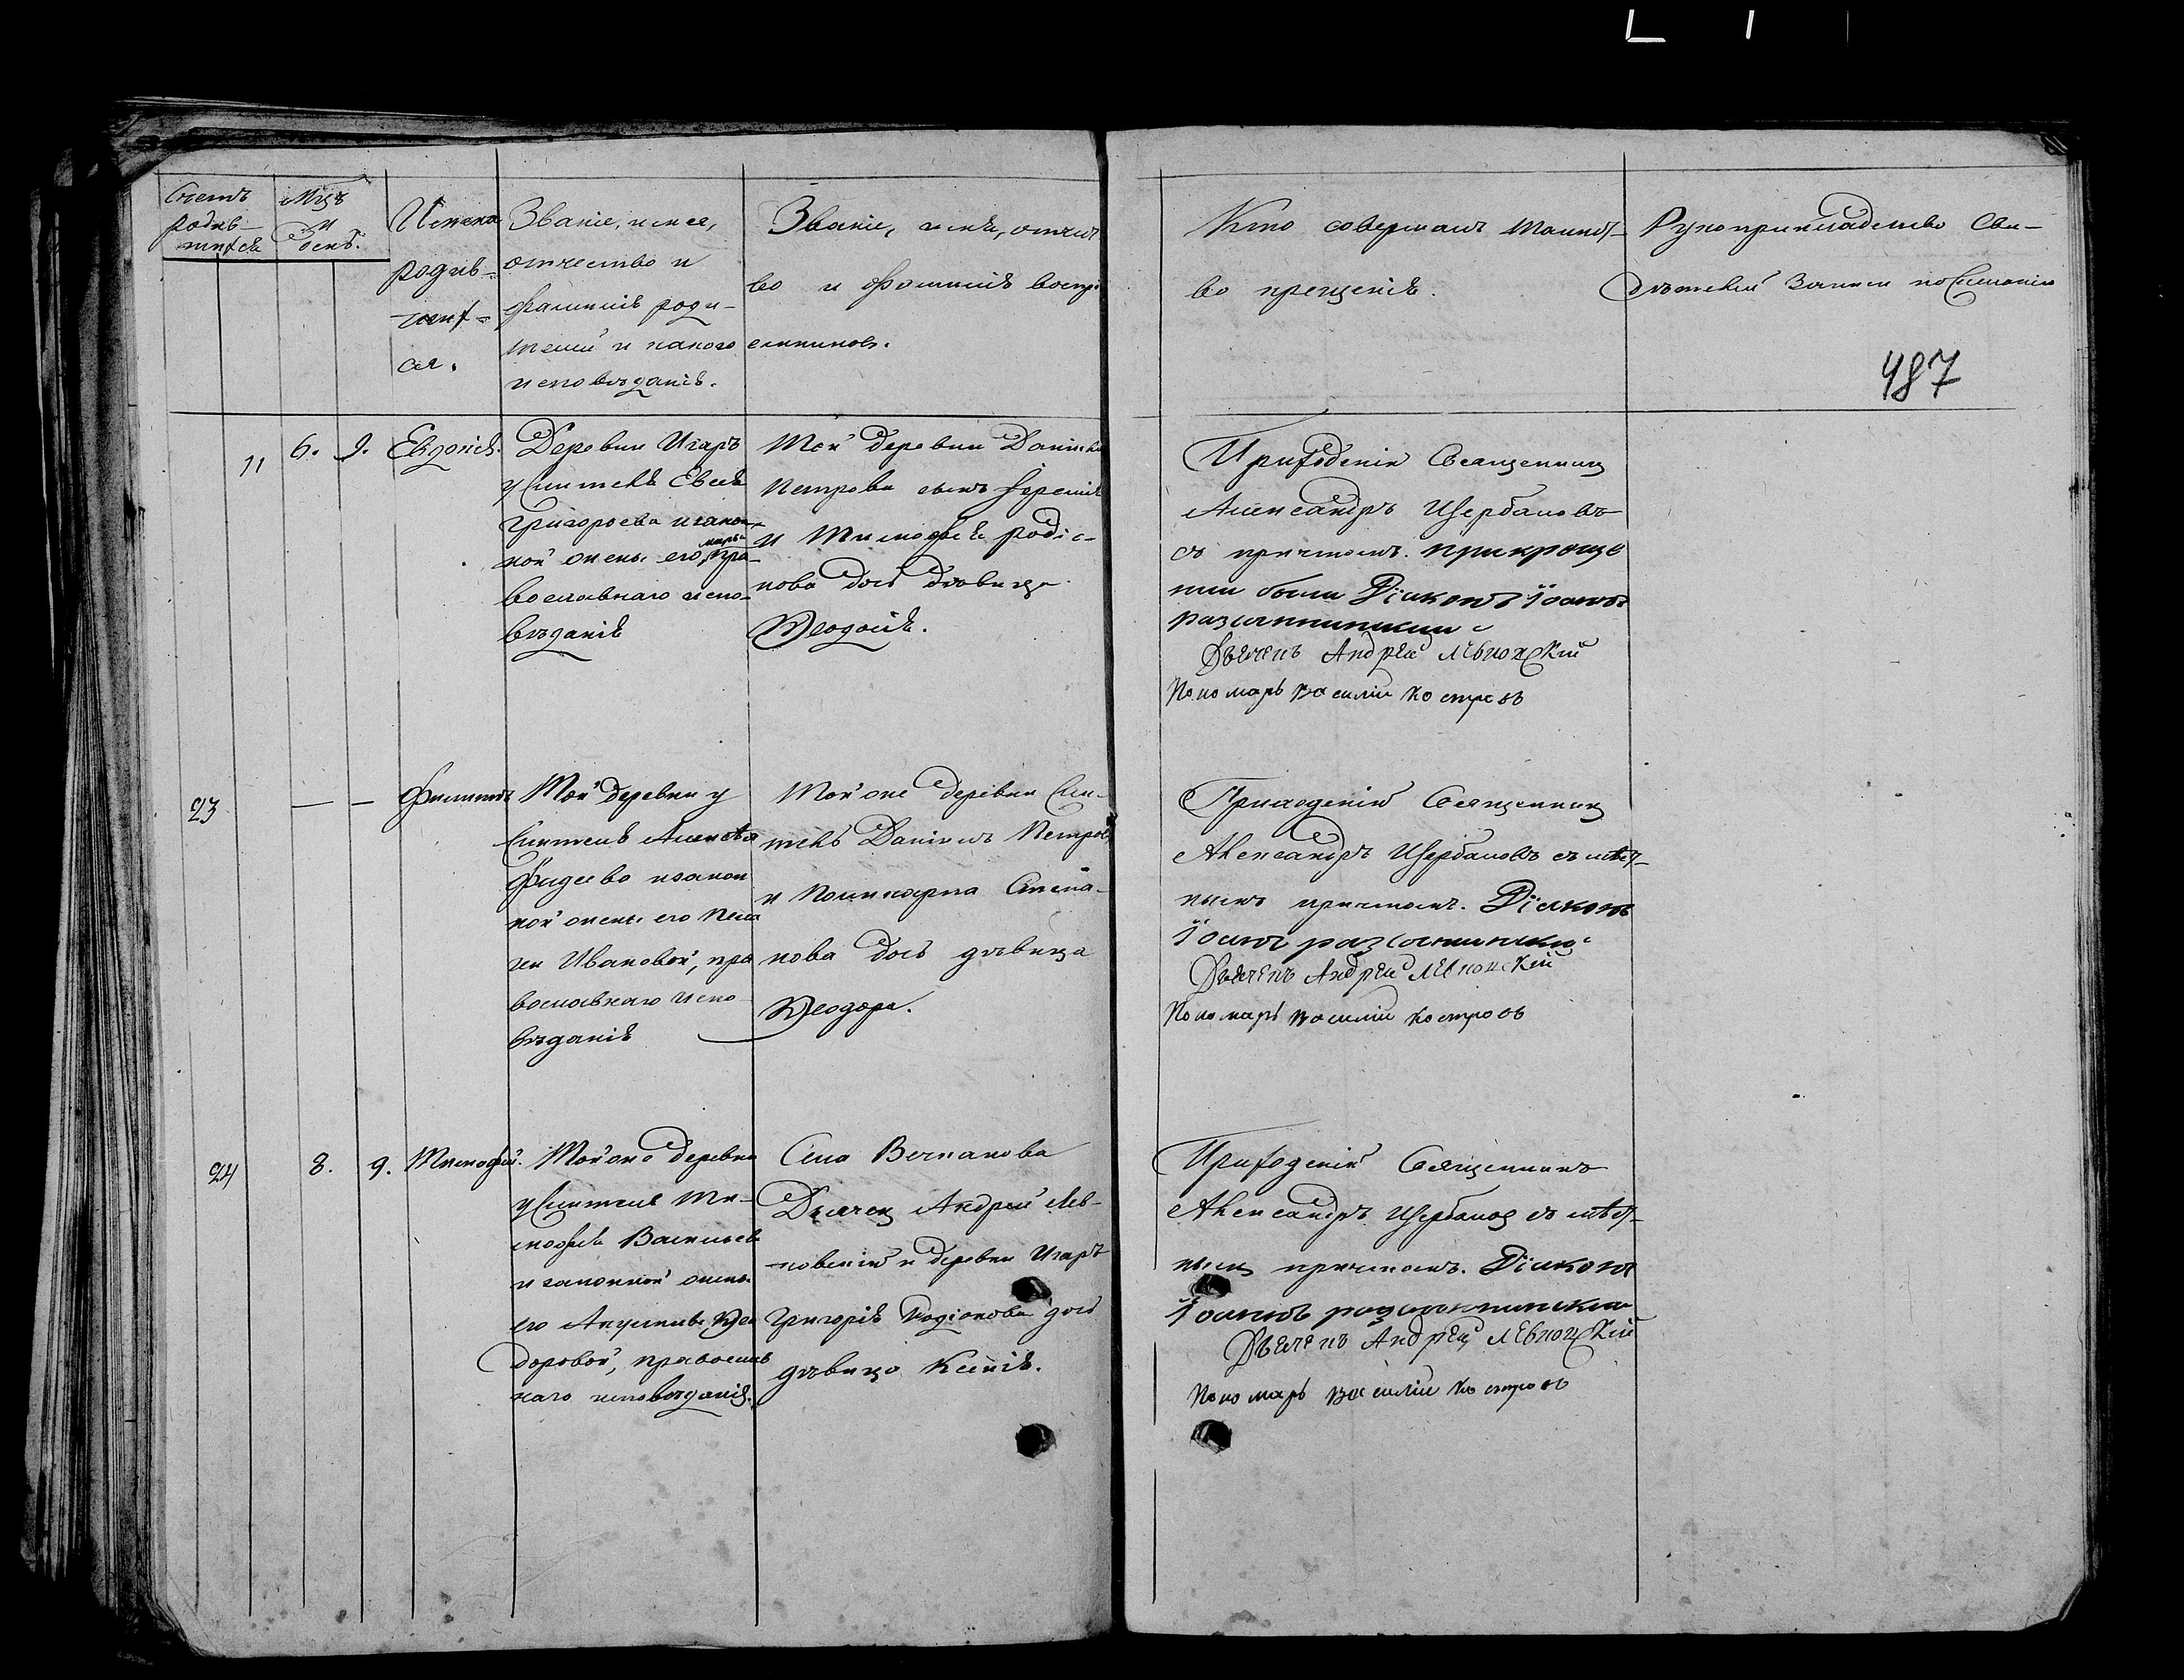 Счетъ
родив-
шихся
Мцъ
и
день.
Имена
родив-
ших-
ся.
Званіе, имя,
отчество и
фамилія роди-
телей и какого
исповѣданія.
Званіе, имя, отчест
во и фамилія воспрі
емниковъ.
Кто совершалъ таинст-
во крещенія.
Рукоприкладство сви-
дѣтелей записи по желанію
487
11
6. 9.
Евдокія.
Деревни Игаръ
жителя Евсея
Григорьева и закон-
ной жены его, Марьи пра-
вославнаго испо-
вѣданія
Той деревни Даніила
Петрова сынъ
и Тимофея Родіо-
нова дочь дѣвица
Ѳеодосія.
Приходскій Священникъ
Александръ Щербаковъ
съ причтомъ. при креще
нии были Діаконъ Іоаннъ
Дьячекъ Андрей Левков­скій
Пономарь Василій Костровъ
23
— —
Филиппъ
Той деревни у
жителя Алексѣя
Фадеева и закон
ной жены его Пела
геи Ивановой, пра
вославнаго испо
вѣданія
Той же деревни жи-
тель Даніилъ Петровъ
и Поликарпа Степа-
нова дочь дѣвица
Ѳеодора.
Приходскій Священникъ
Александръ Щербаковъ съ мѣст-
нымъ причтомъ. Діаконъ
Іоаннъ
Дьячекъ Андрей Левковскій
Пономарь Василій Костровъ
24
8. 9.
Тимофей.
Той же деревни
у жителя Ти-
мофея Васильева
и законной жены
его Акулины Ѳео
доровой, православ
наго исповѣданія.
Села Вечканова
Дьячекъ Андрей Лев-
ковскій и деревни Игаръ
Григорія Родіонова дочь
дѣвица Ксенія.
Приходскій Священникъ
Александръ Щербаковъ съ мѣст-
нымъ причтомъ. Діаконъ
Іоаннъ
Дьячекъ Андрей Левковскій
Пономарь Василій Костровъ